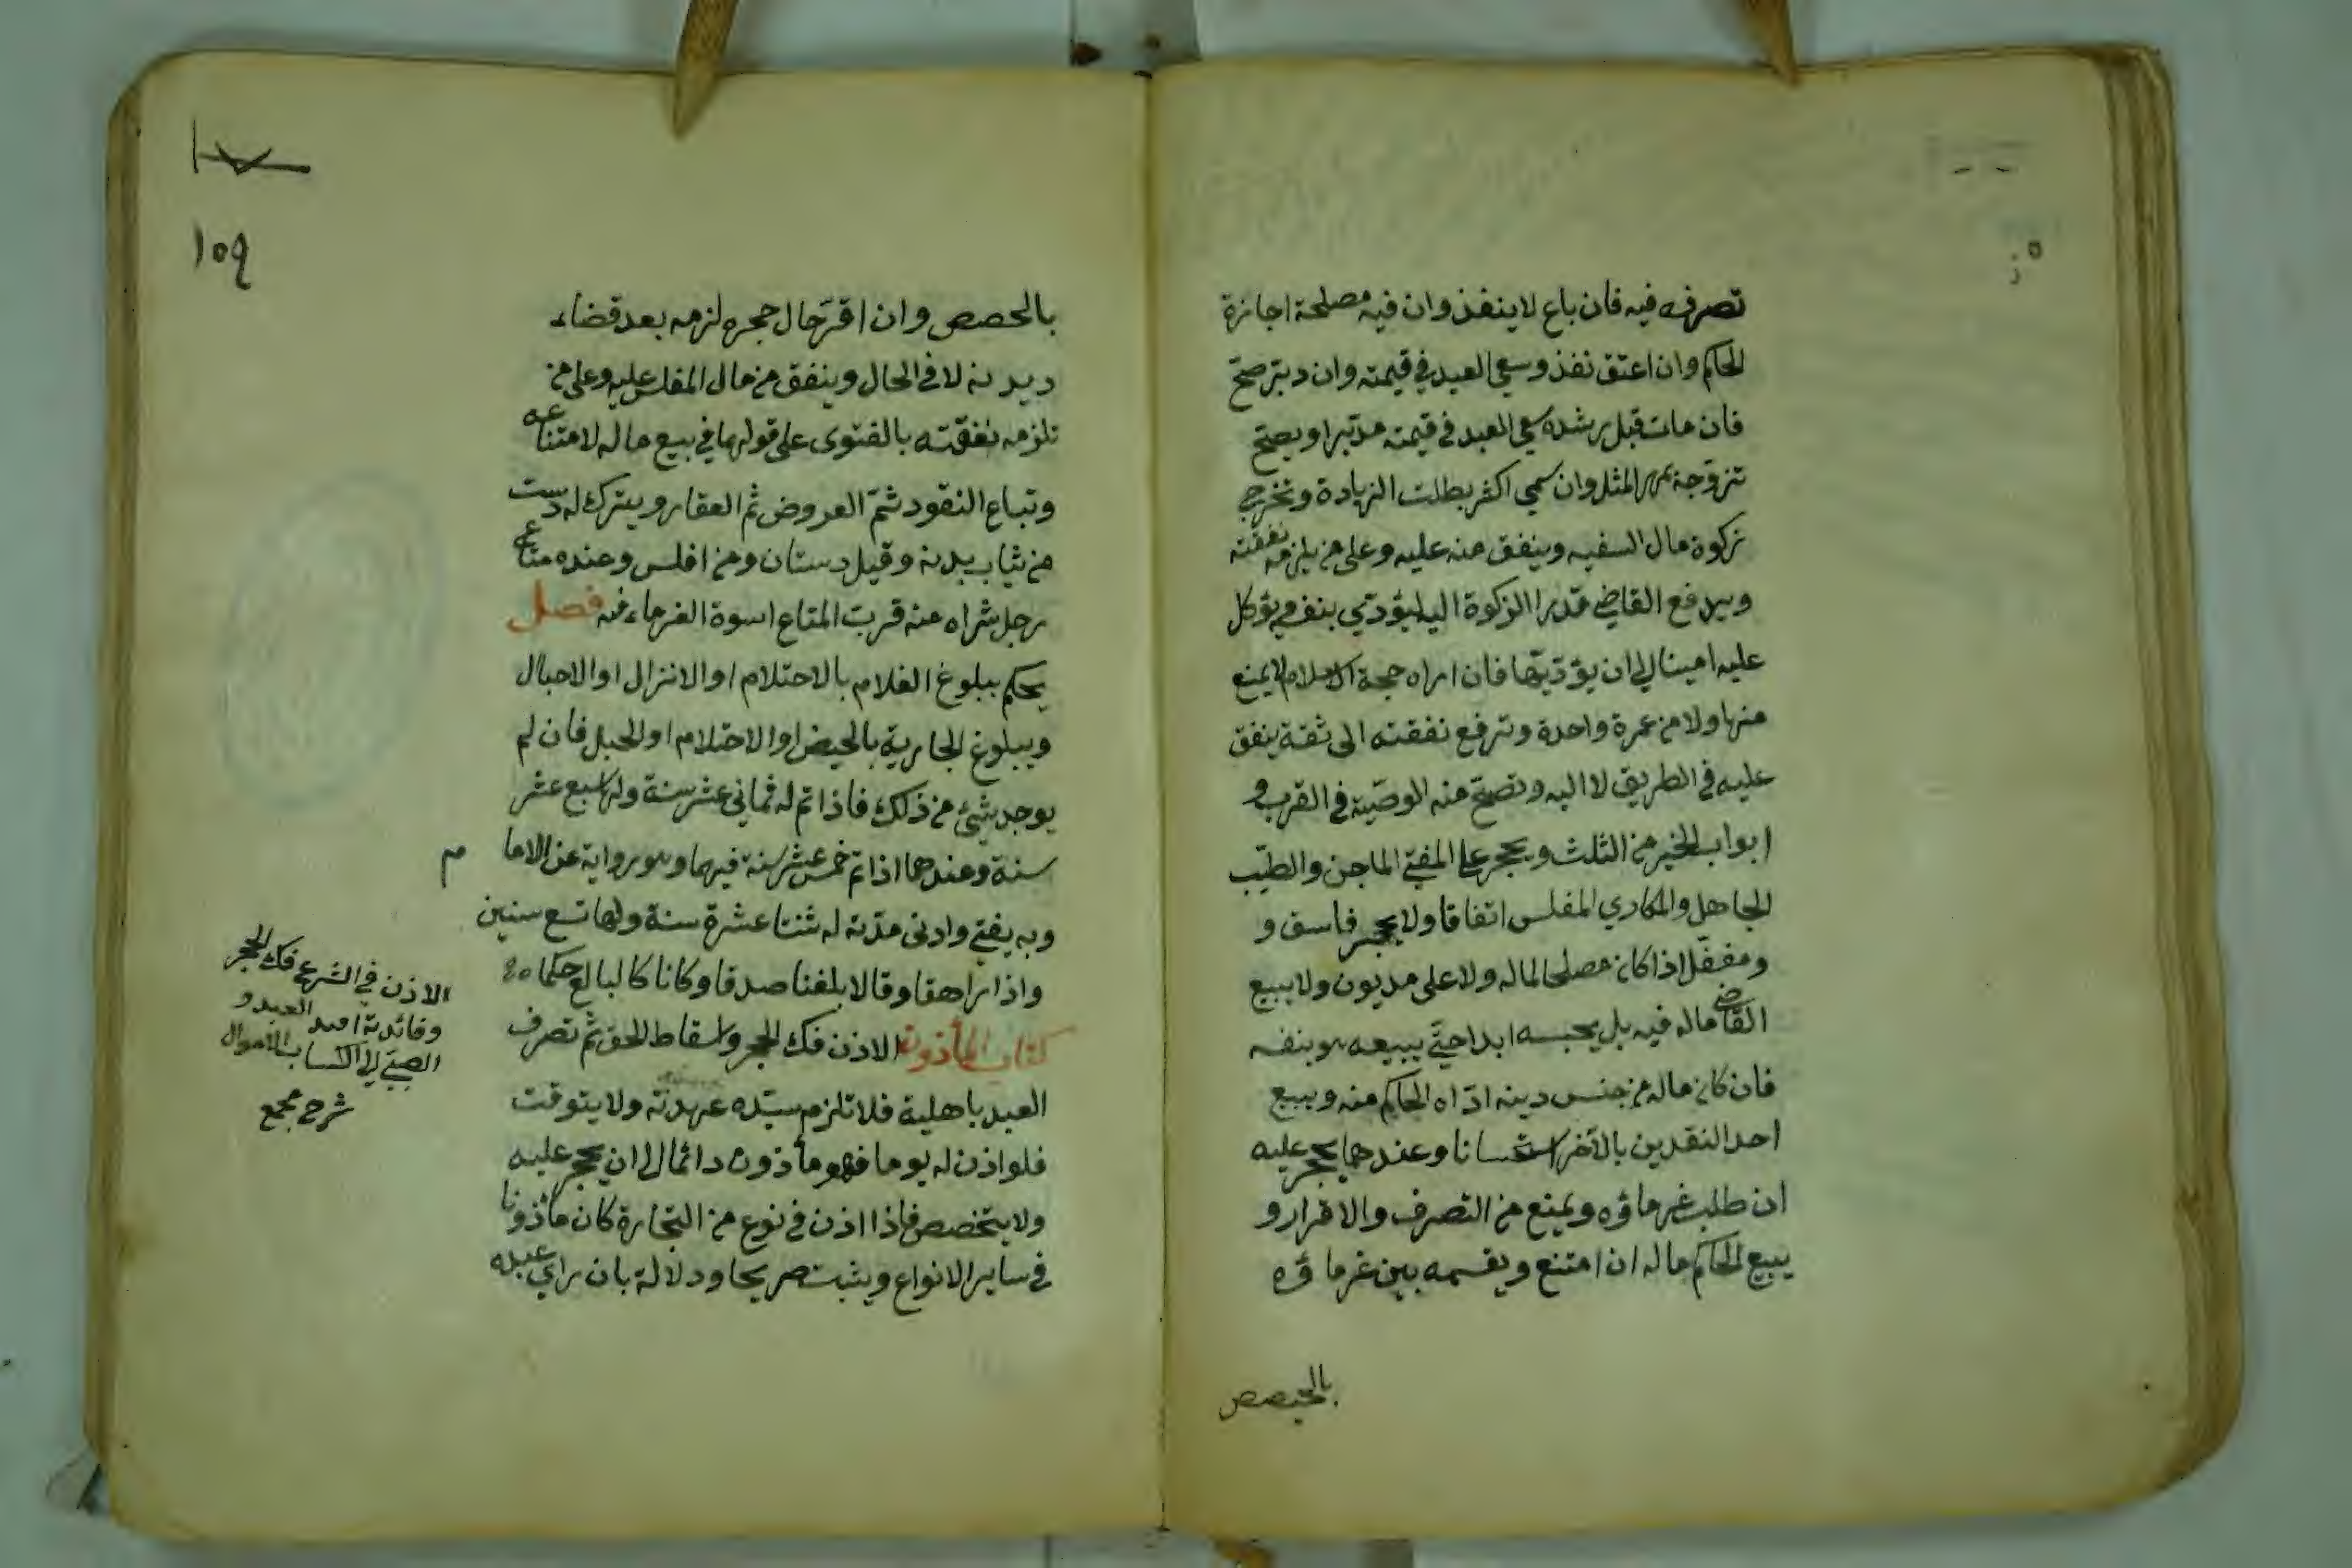 تصرفه فيه فان باع لا ينفذ وان فيه مصلحة اجازة
الحاكم وان اعتق نفذ وسعي العبد في قيمته وان دبر صح
فان مات قبل رشده سعي العبد في قيمته مدبرا ويصح
تزوجه بمهر المثل وان سمي اكثر بطلت الزيادة وتخرج
زكوة مال السفيه وينفق منه عليه وعلى من يلزمه نفقته
ويدفع القاضي قدر الزكوة اليه ليؤدي بنفسه ويؤكل
عليه امينا الى ان يؤديها فان اراد حجة الاسلام لا يمنع
منها ولا من عمرة واحدة وترفع نفقته الى ثقة ينفق
عليه في الطريق لا اليه وتصح منه الوصية في القرب و
ابواب الخير من الثلث ويحجر على المفتي الماجن والطبيب
الجاهل والمكاري المفلس اتفاقا ولا يحجر فاسق و
ومغفل اذا كان مصلحا لماله ولا على مديون ولا يبيع
القاضي ماله فيه بل يحبسه ابدا حتى يبيعه هو بنفسه
فان كان ماله من جنس دينه اداه الحاكم منه ويبيع
احد النقدين بالآخر استحسانا وعندهما يحجر عليه
ان طلب غرماؤه ويمنع من التصرف والاقرار و
يبيع الحاكم ماله ان امتنع ويقسمه بين غرماؤه
بالحصص
١٥٩
بالحصص وان اقر حال حجره لزمه بعد قضاء
ديدنه لا في الحال وينفق من مال المفلس عليه وعلى من
تلزمه نفقته بالفتوى على قولهما في بيع ماله لامتناعه
وتباع النقود ثم العروض ثم العقار ويترك له دست
من ثياب بدنه وقيل دستان ومن افلس وعنده متاع
رجل شراه منه فرب المتاع اسوة الغرماء فيه فصل
يحكم ببلوغ الغلام بالاحتلام او الانزال او الاحبال
وببلوغ الجارية بالحيض او الاحتلام او الحبل فان لم
يوجد شئ من ذلك فاذا تم له ثماني عشر سنة ولها سبع عشر
سنة وعندهما اذا تم خمس عشر سنة فيهما وهو رواية عن الاما م
وبه يفتي وادنى مدته له ثنتا عشرة سنة ولها تسع سنين
واذا راهقا وقالا بلغنا صدقا وكانا كالبالغ حكما
كتاب المأذون الاذن فك الحجر واسقاط الحق ثم تصرف
العبد باهلية فلا تلزم سيده عهدته ولا يتوقت
فلو اذن له يوما فهو مأذون دائما الى ان يحجر عليه
ولا يتخصص فاذا اذن في نوع من التجارة كان مأذونا
في ساير الانواع ويثبت صريحا ودلالة بان راي عبده
الاذن في الشرع فك الحجر
وفائدته العبد و
الصبي الى اكتساب الاموال
شرح مجمع